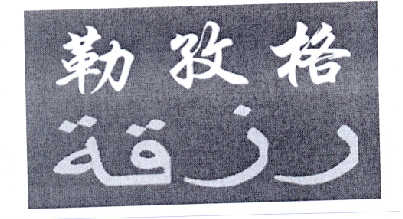 勒孜格
رزقة